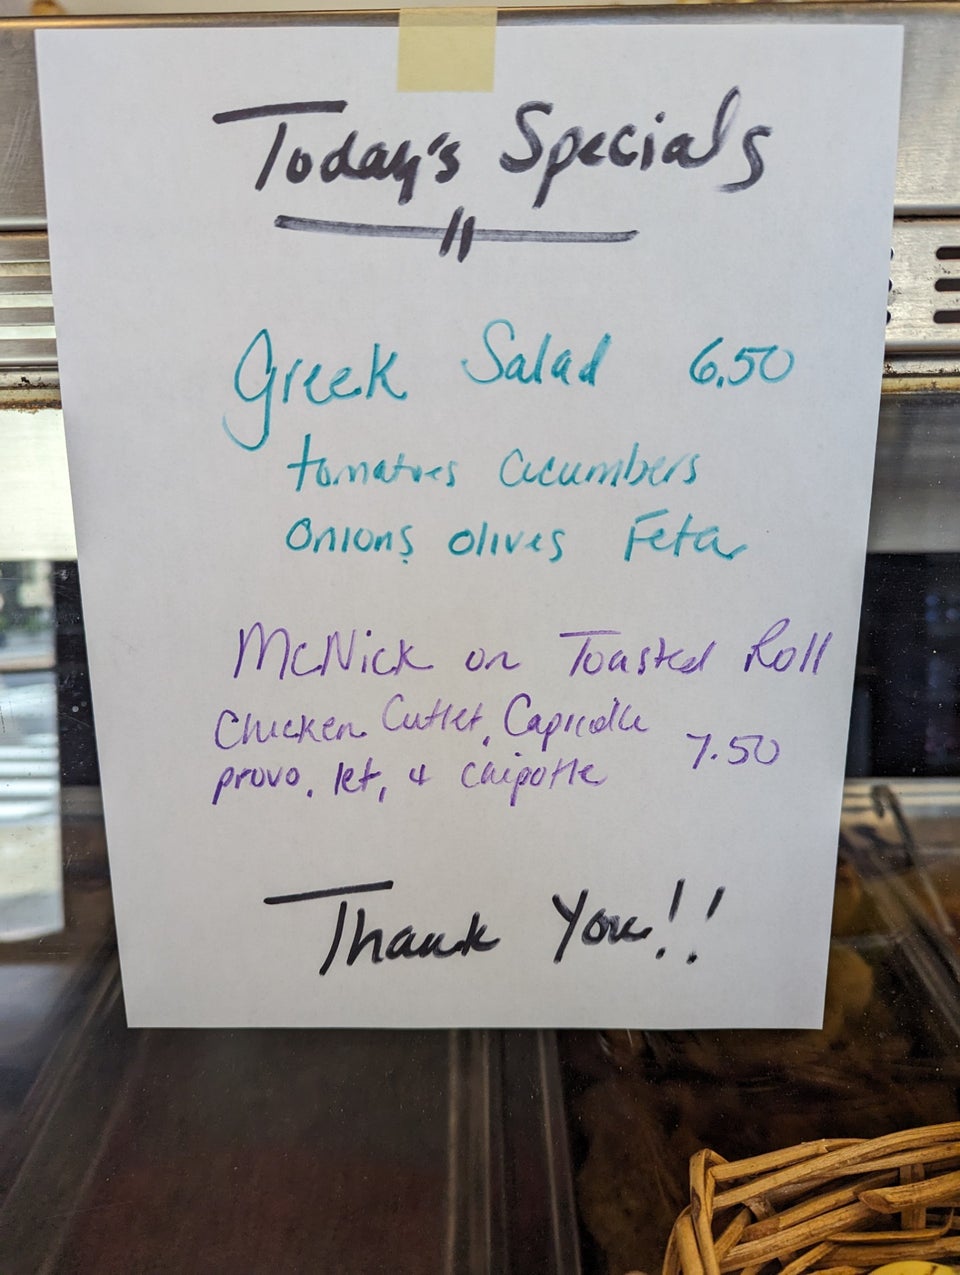 Today's Specials
Greek Salad 6.50
tomatoes cucumbers
onions olives Feta
McNick on Toasted Roll
Chicken Cutlet, Capricolle
provo, let, & chipotle 7.50
Thank You!!